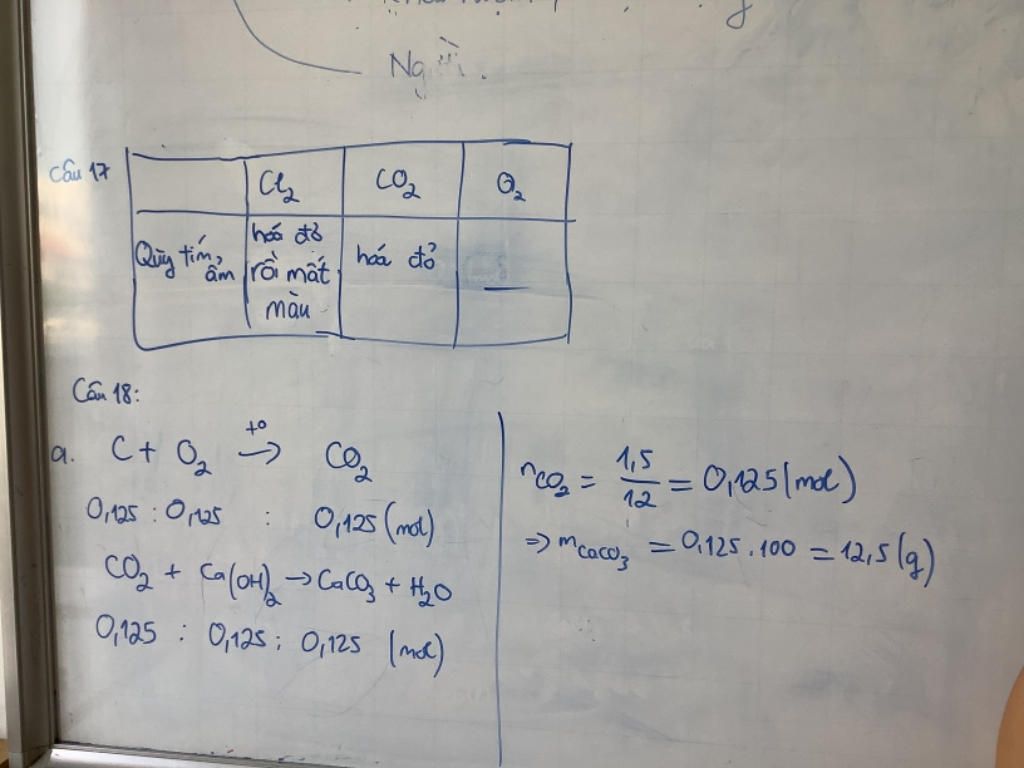 Câu 17
Cl2 CO2 O2
Quỳ tím, ẩm hoá đỏ rồi mất màu hoá đỏ —
Câu 18:
a. C + O2 →(t°) CO2
0,125 : 0,125 : 0,125 (mol)
CO2 + Ca(OH)2 → CaCO3 + H2O
0,125 : 0,125 : 0,125 (mol)
nCO2 = 1,5/12 = 0,125 (mol)
=> mCaCO3 = 0,125 . 100 = 12,5 (g)